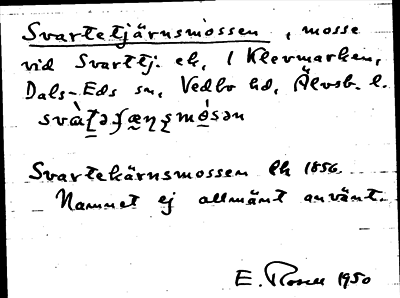 Svartetjärnsmossen, mosse
vid Svarttj. ek, i Klevmarken,
Dals-Eds sn, Vedbo hd, Älvsb. l.
Svartekärnsmossen Ek 1856.
Namnet ej allmänt använt.
E. Rosell 1950